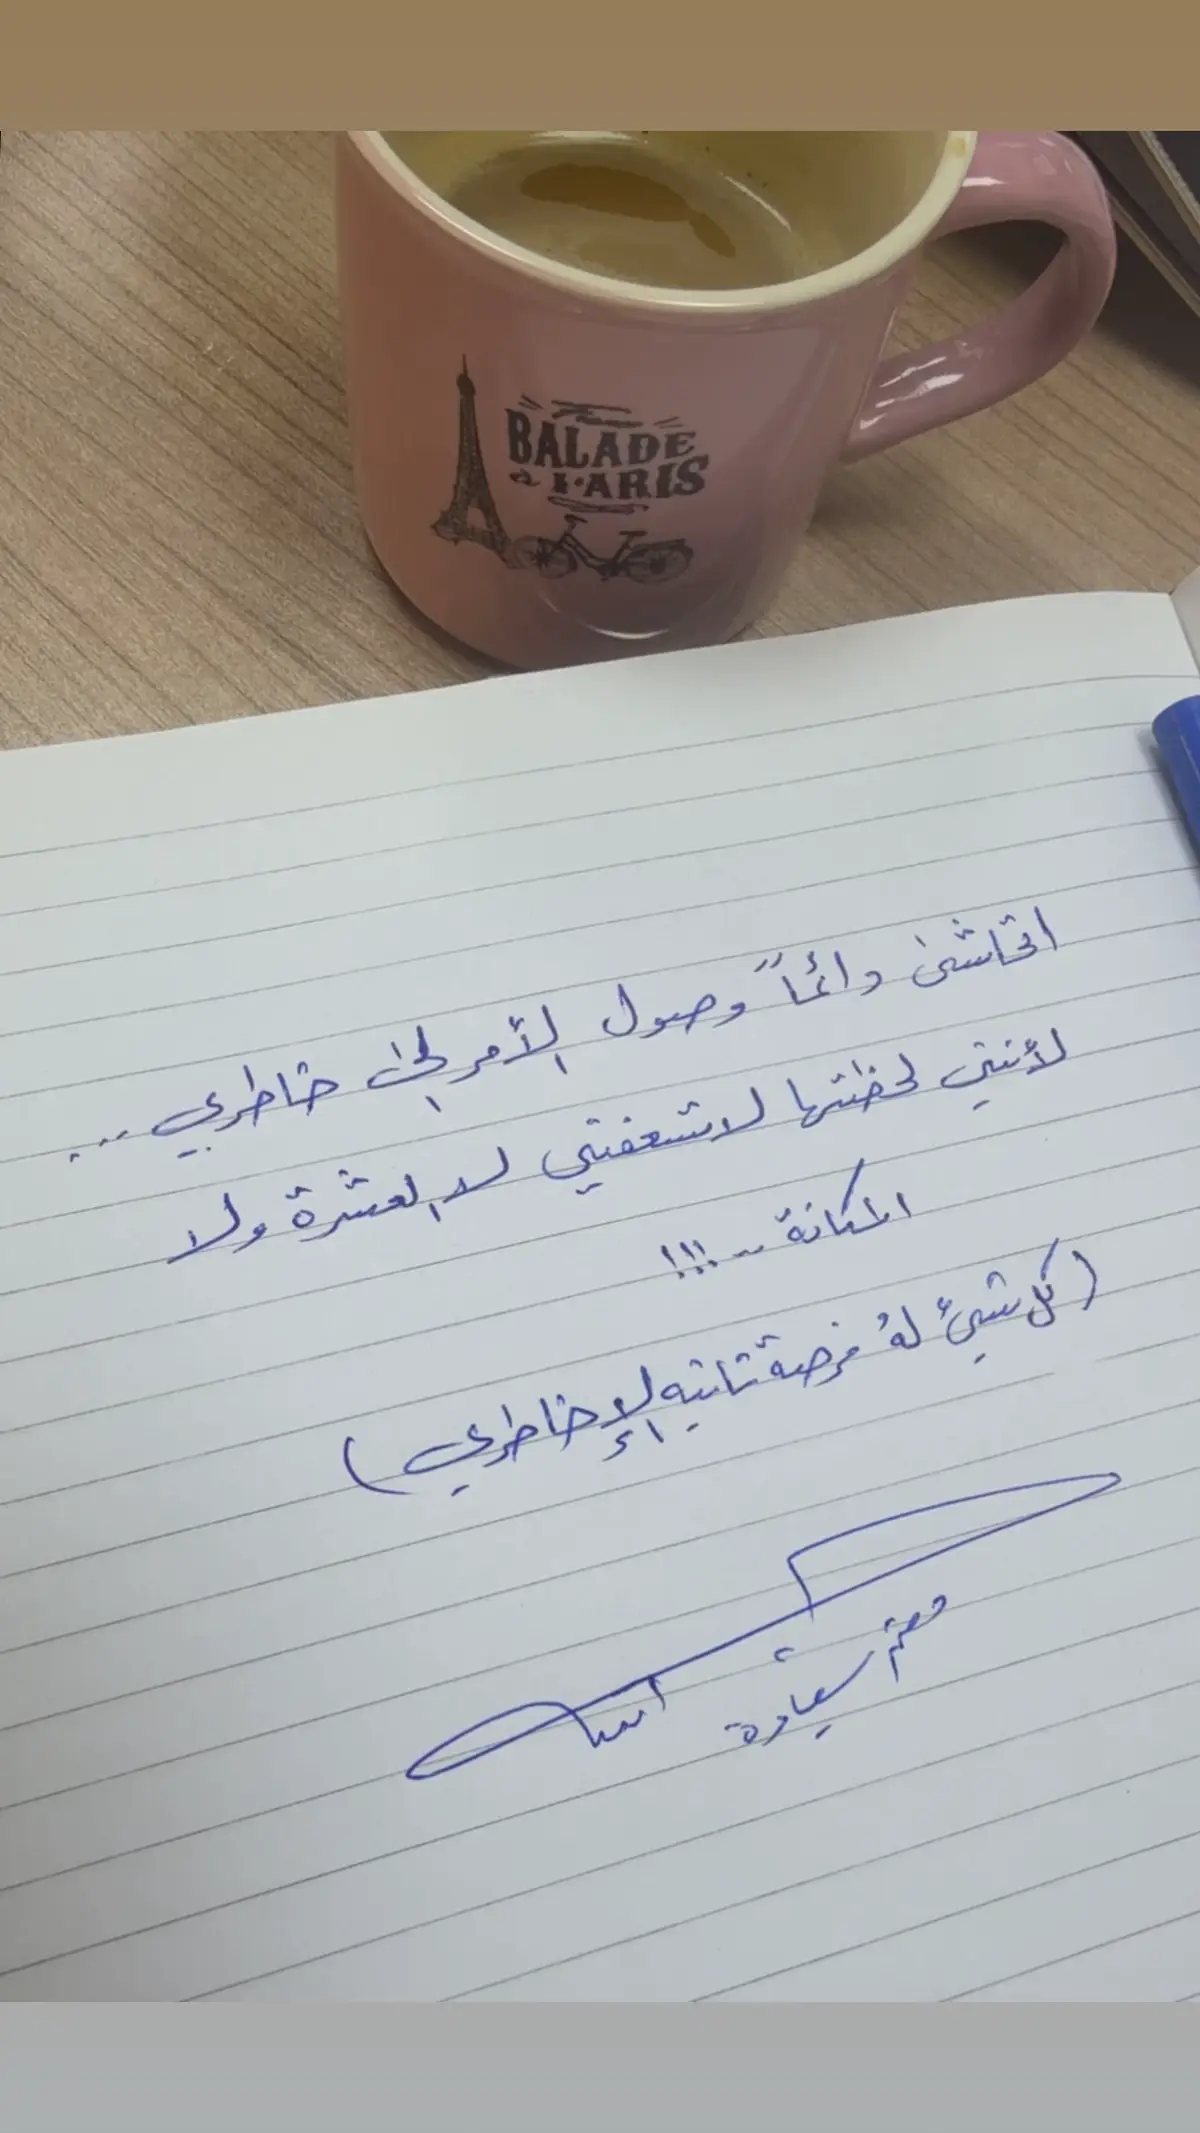 BALADE
à PARIS
اتحاشى دائماً وصول الأمر إلى خاطري ...
لأنني لحظتها لا تشعفني لا العشرة ولا
المكانة .. !!!
(كل شيئ لهُ فرصة ثانيه إلا خاطري)
سعادة